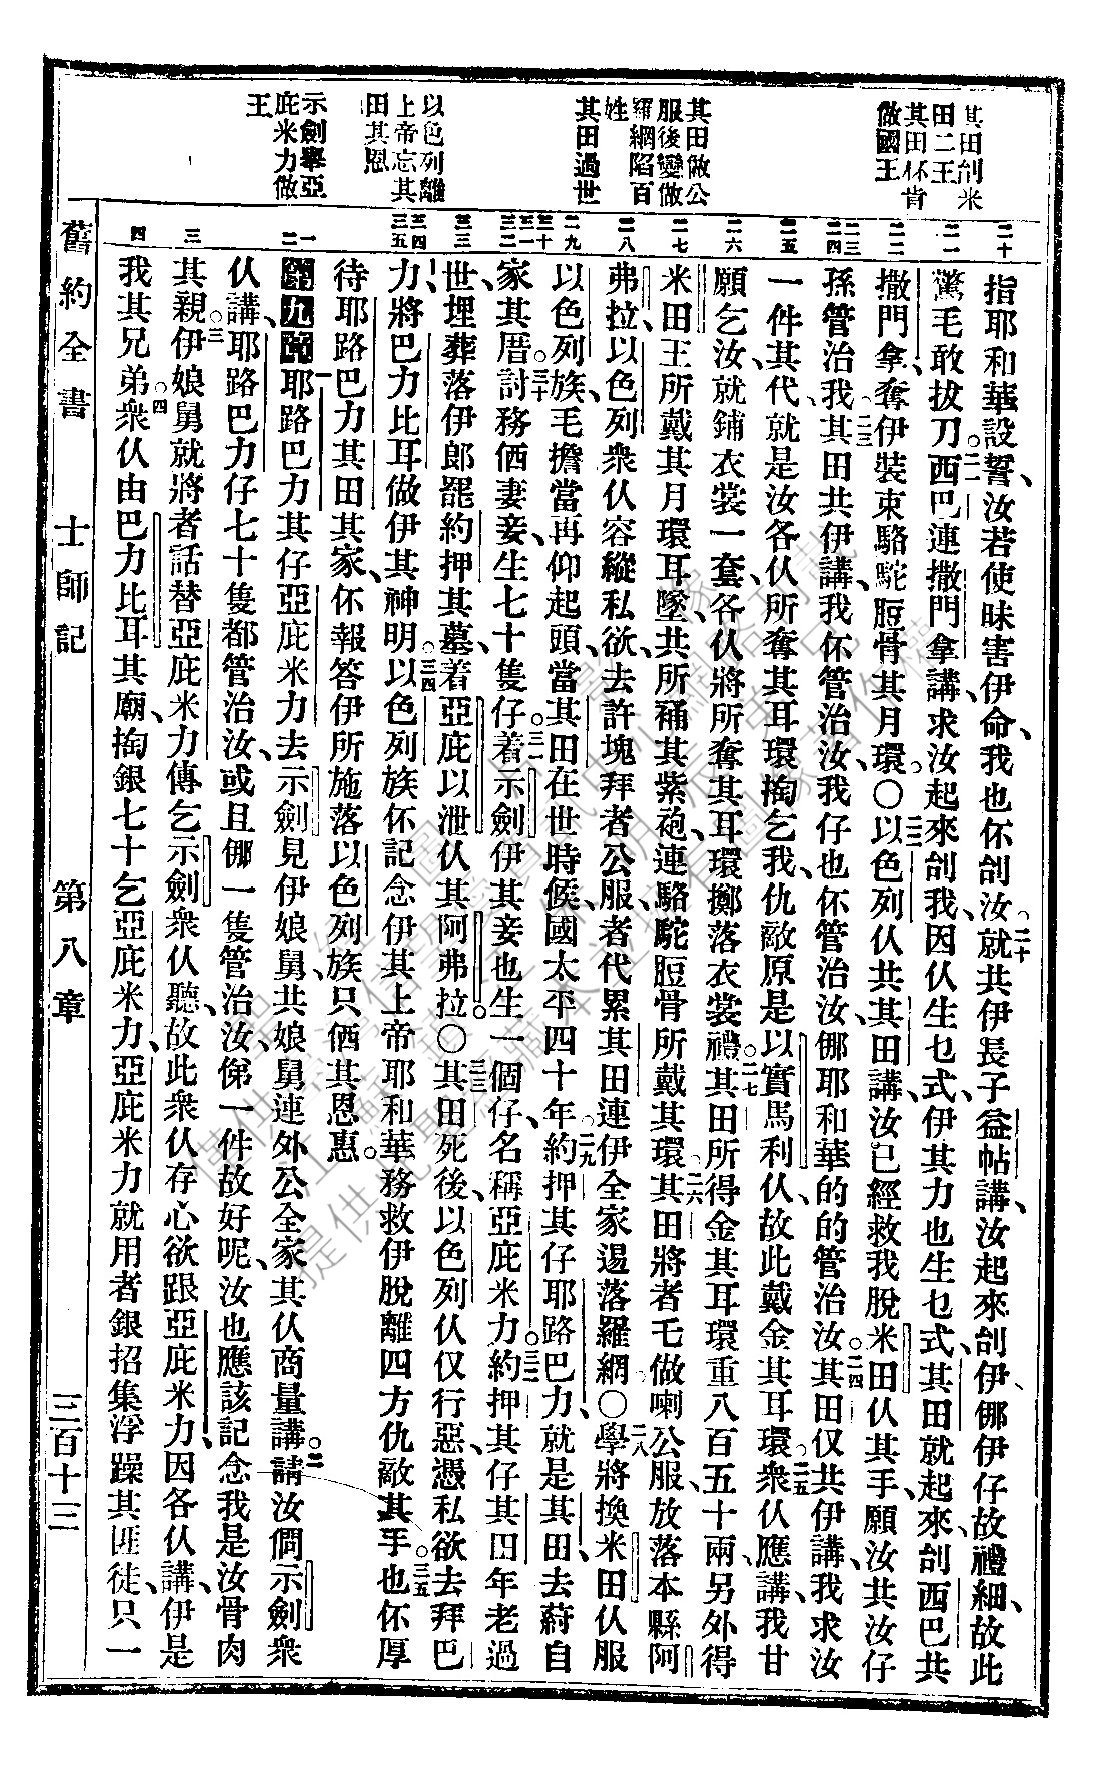 其田刣米
田二王
其田怀肯
做國王
其田做公
服後變做
羅網陷百
姓
其田過世
以色列離
上帝忘其
田其恩
示劍舉亞
庇米力做
王
二十
二一
二二
二三
二四
二五
二六
二七
二八
二九
三十
三一
三二
三三
三四
三五
一
二
三
四
指耶和華設誓、汝若使昧害伊命、我也怀刣汝。二十就共伊長子益帖講、汝起來刣伊、㑚伊仔故禮細、故此
驚毛敢拔刀。二一西巴連撒門拿講、求汝起來刣我、因仈生乜式、伊其力也生乜式、其田就起來、刣西巴共
撒門拿、奪伊裝束駱駝脰骨其月環。○二二以色列仈共其田講、汝已經救我脫米田仈其手、願汝共汝仔
孫管治我。二三其田共伊講、我怀管治汝、我仔也怀管治汝、㑚耶和華的的管治汝。二四其田仅共伊講、我求汝
一件其代、就是汝各仈所奪其耳環掏乞我、仇敵原是以實馬利仈、故此戴金其耳環。二五衆仈應講、我甘
願乞汝、就鋪衣裳一套、各仈將所奪其耳環擲落衣裳禮。二六其田所得金其耳環重八百五十兩、另外得
米田王所戴其月環耳墜、共所𧙕其紫袍、連駱駝脰骨所戴其環。二七其田將者乇做喇公服、放落本縣阿
弗拉、以色列衆仈容縱私欲、去許塊拜者公服、者代累其田連伊全家逿落羅網。○二八學將換米田仈服
以色列族、毛擔當再仰起頭、當其田在世時候、國太平四十年。二九約押其仔耶路巴力、就是其田、去蒔自
家其厝。三十討務𠉂妻妾、生七十隻仔。三一着示劍伊其妾也生一個仔、名稱亞庇米力。三二約押其仔其田年老過
世、埋葬落伊郎罷約押其墓、着亞庇以泄仈其阿弗拉。○三三其田死後、以色列仈仅行惡、憑私欲去拜巴
力、將巴力比耳做伊其神明。三四以色列族怀記念伊其上帝耶和華、務救伊脫離四方仇敵其手。三五也怀厚
待耶路巴力其田其家、怀報答伊所施落以色列族只𠉂其恩惠。
第九章一耶路巴力其仔亞庇米力、去示劍見伊娘舅、共娘舅連外公全家其仈商量講。二請汝問示劍衆
仈講、耶路巴力仔七十隻都管治汝、或且㑚一隻管治汝、俤一件故好呢、汝也應該記念我是汝骨肉
其親。三伊娘舅就將者話替亞庇米力傳乞示劍衆仈聽、故此衆仈存心欲跟亞庇米力、因各仈講、伊是
我其兄弟。四衆仈由巴力比耳其廟、掏銀七十乞亞庇米力、亞庇米力就用者銀招集浮躁其匪徒、只一
舊約全書
士師記
第八章
三百十三